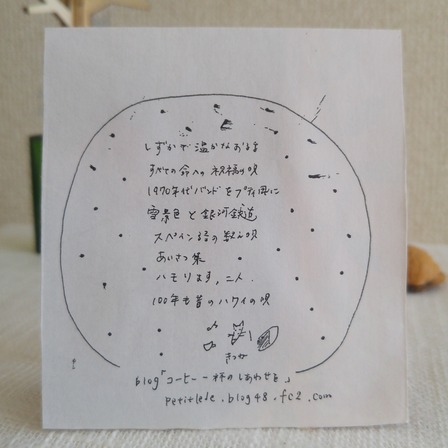 しずかで温かなおはなし
すべての命への祝福の唄
1970年代バンドをプティ用に
雪景色と銀河鉄道
スペイン語の数え唄
あいさつ集
ハモります、二人.
100年も昔のハワイの唄
きっか
blog「コーヒー一杯のしあわせを」
petitlede.blog48.fc2.com